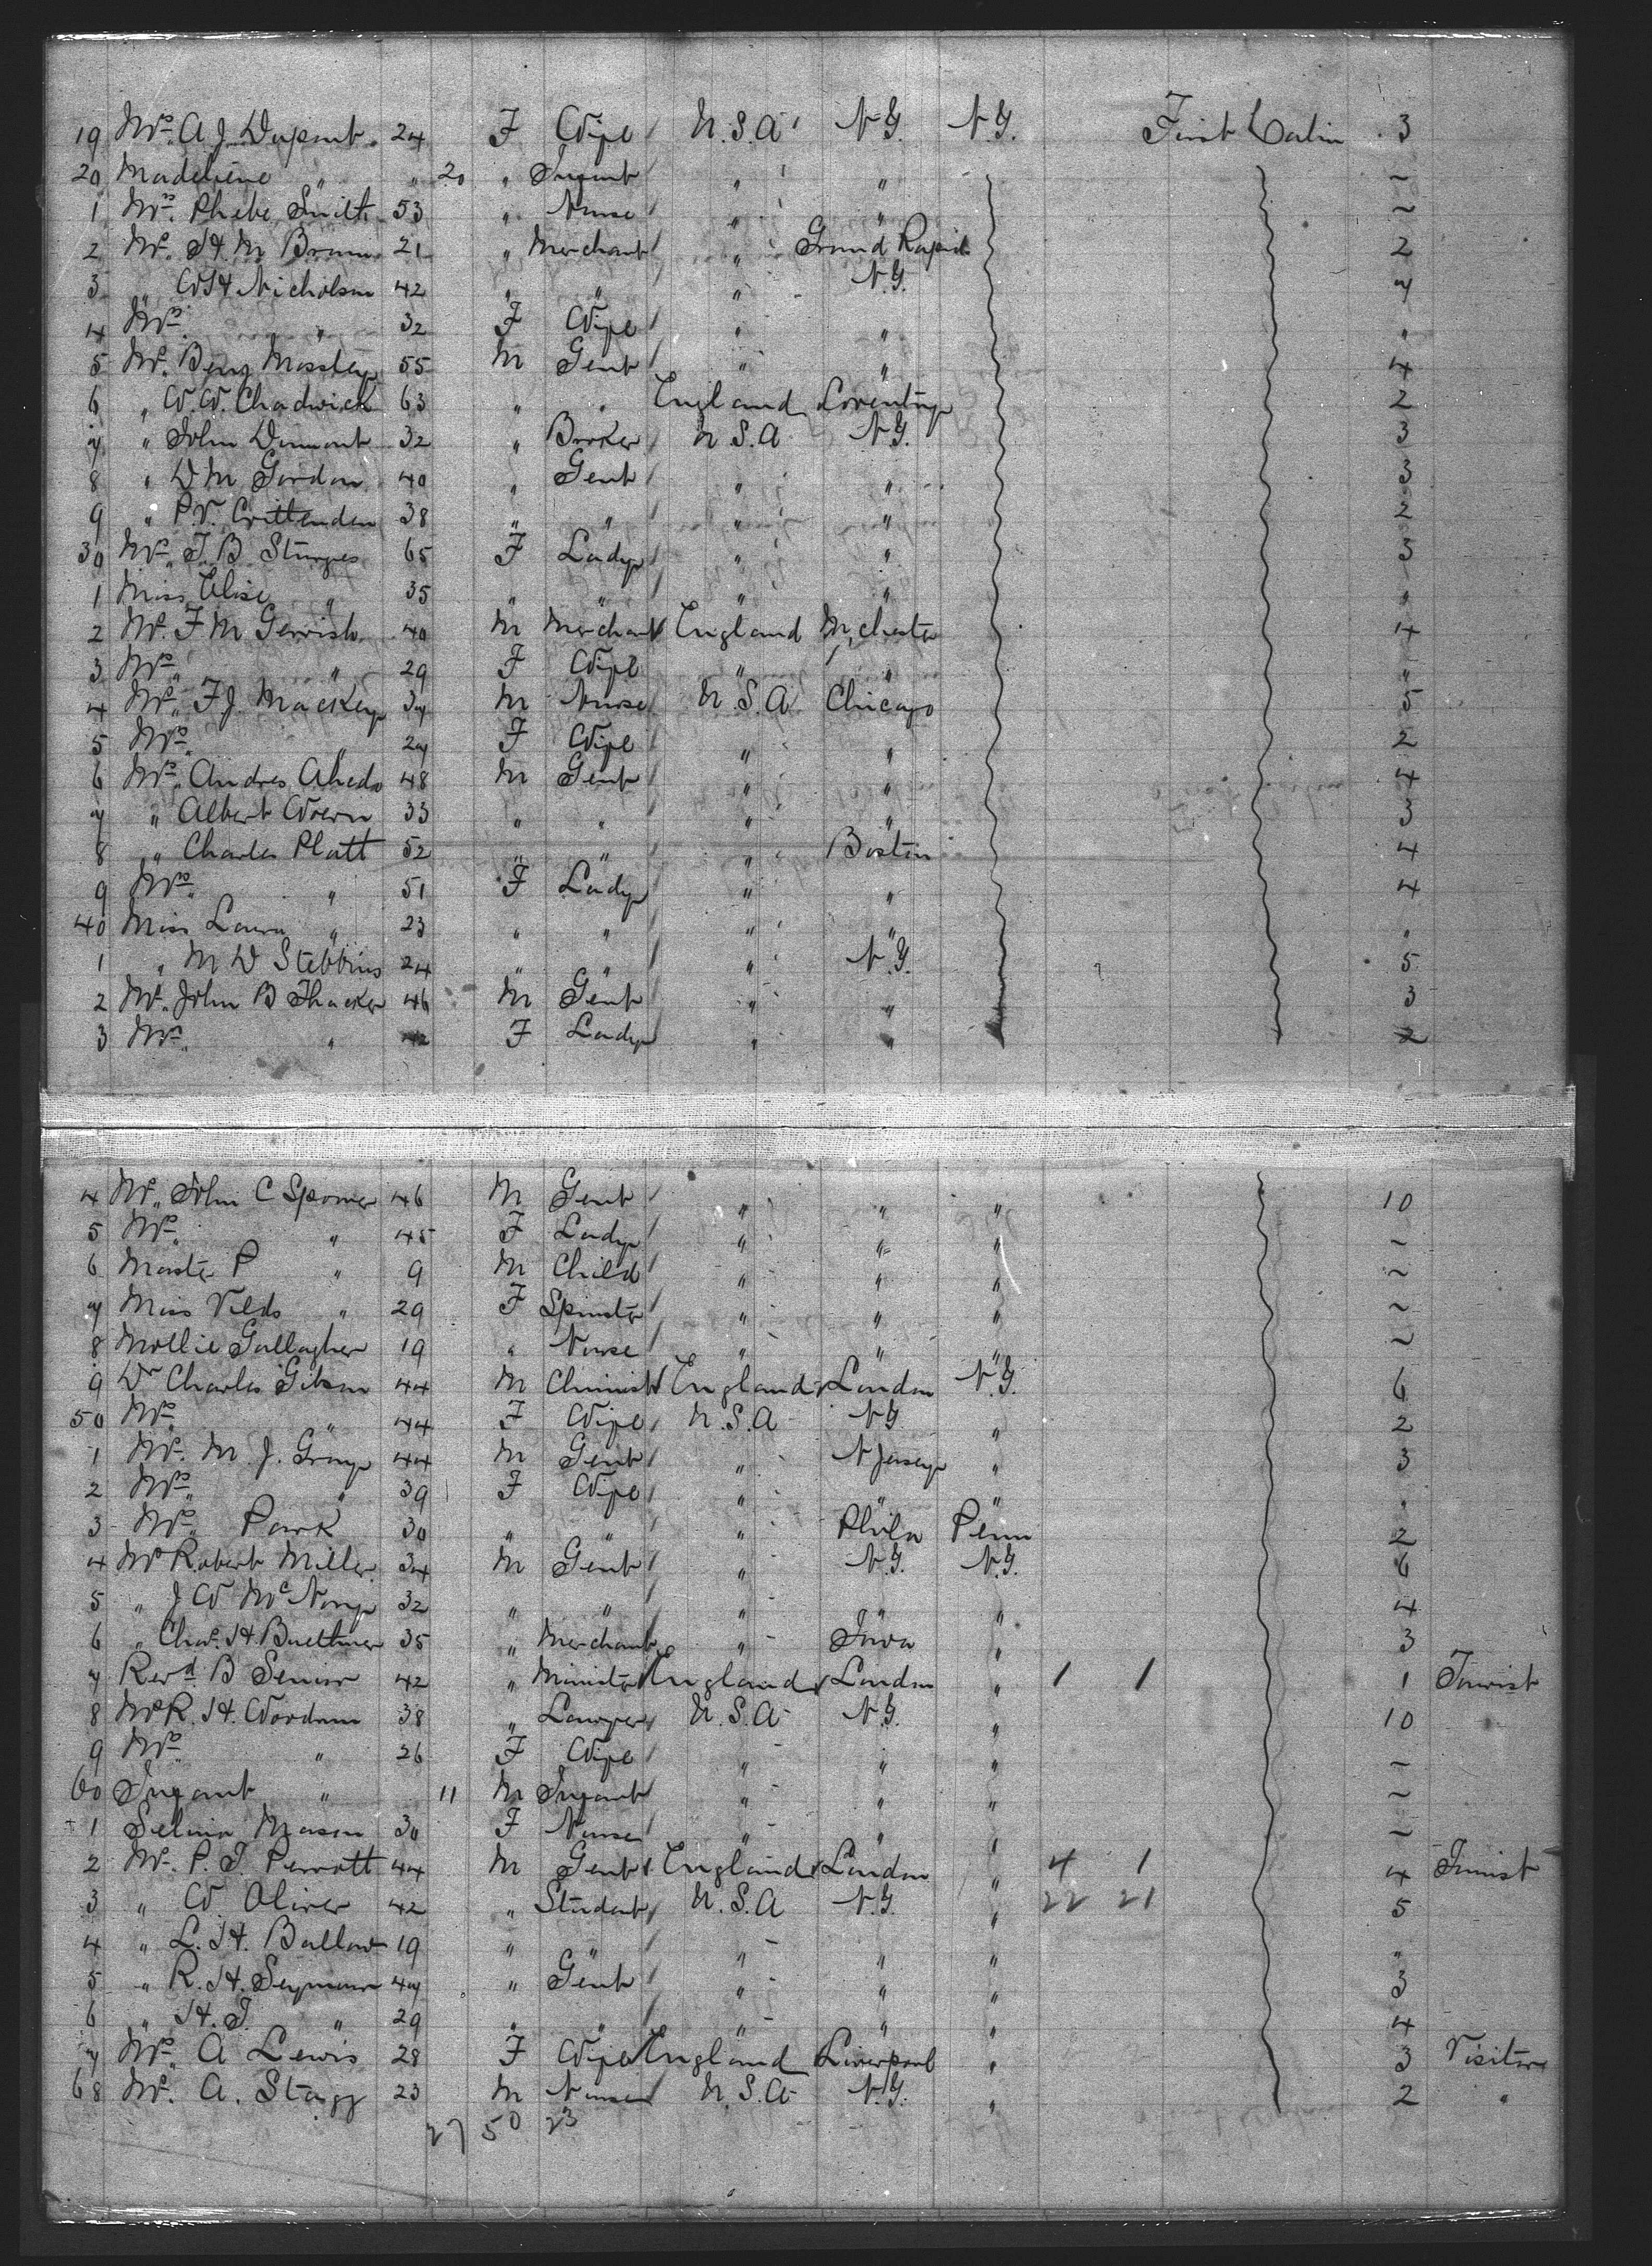 19 Mrs. A J Dupont 24 F Wife U.S.A N.Y. N.Y. First Cabin 3
20 Madeliene " " 20 " Infant " " ~
1 Mrs. Phebe Smith 53 " Nurse " " ~
2 Mr. H. M Brown 21 " Merchant " Grand Rapids 2
3 " W H Nicholson 42 " " " N.Y. 7
4 Mrs. " 32 F Wife " " "
5 Mr. Benj Mossley 55 M Gent " " 4
6 " W. W. Chadwick 63 " " England Coventry 2
7 " John Dumont 32 " Broker U.S.A N.Y. 3
8 " D M Gordon 40 " Gent " " 3
9 " P. V. Crittenden 38 " " " " 2
30 Mrs. J. B Sturges 65 F Lady " " 3
1 Miss Elise " 35 " " " " "
2 Mr. F M Gerrish 40 M Merchant England M,chester 4
3 Mrs. " 29 F Wife " " "
4 Mr. F J. Mackey 37 M Nurse U.S.A Chicago 5
5 Mrs. " 27 F Wife " " 2
6 Mr. Andres 48 M Gent " " 4
7 " Albert 33 " " " " 3
8 " Charles Platt 52 " " " Boston 4
9 Mrs. " 51 F Lady " " 4
40 Miss Laura " 23 " " " " "
1 " M D Stebbins 24 " " " N.Y. 5
2 Mr. John B Thacker 46 M Gent " " 3
3 Mrs. " 42 F Lady " " 2
4 Mr. John C Spooner 46 M Gent " " " 10
5 Mrs. " 45 F Lady " " " ~
6 Master P " 9 M Child " " " ~
7 Miss " 29 F Spinster " " " ~
8 Mollie Gallagher 19 " Nurse " " " ~
9 Dr Charles Gibson 44 M Chimist England London N.Y. 6
50 Mrs. " 44 F Wife U.S.A N.Y. " 2
1 Mr. M. J. Gray 44 M Gent " N Jersey " 3
2 Mrs. " 39 F Wife " " " "
3 Mrs. Park 30 " " " Phila Penn 2
4 Mr Robert Miller 34 M Gent " N.Y. N.Y. 6
5 " J W 32 " " " " " 4
6 " Chas. H. Buettner 35 " Merchant " Iowa " 3
7 Revd B Senior 42 " Minister England London " 1 1 1 Tourist
8 Mr R. H. Wordam 38 " Lawyer U.S.A N.Y. " 10
9 Mrs. " 26 F Wife " " " ~
60 Infant " 11 M Infant " " " ~
1 Selina Mason 30 F Nurse " " " ~
2 Mr. P. J. Perrott 44 M Gent England London " 4 1 4 Tourist
3 " W. Oliver 42 " Student U.S.A N.Y. " 22 21 5
4 " L. H. Ballow 19 " " " " " "
5 " R. H. Seymour 47 " Gent " " " 3
6 " H. J. " 29 " " " " " 4
7 Mrs. A Lewis 28 F Wife England Liverpool " 3 Visitor
68 Mr. A. Stagg 23 M U.S.A N.Y. " 2 "
27 50 23